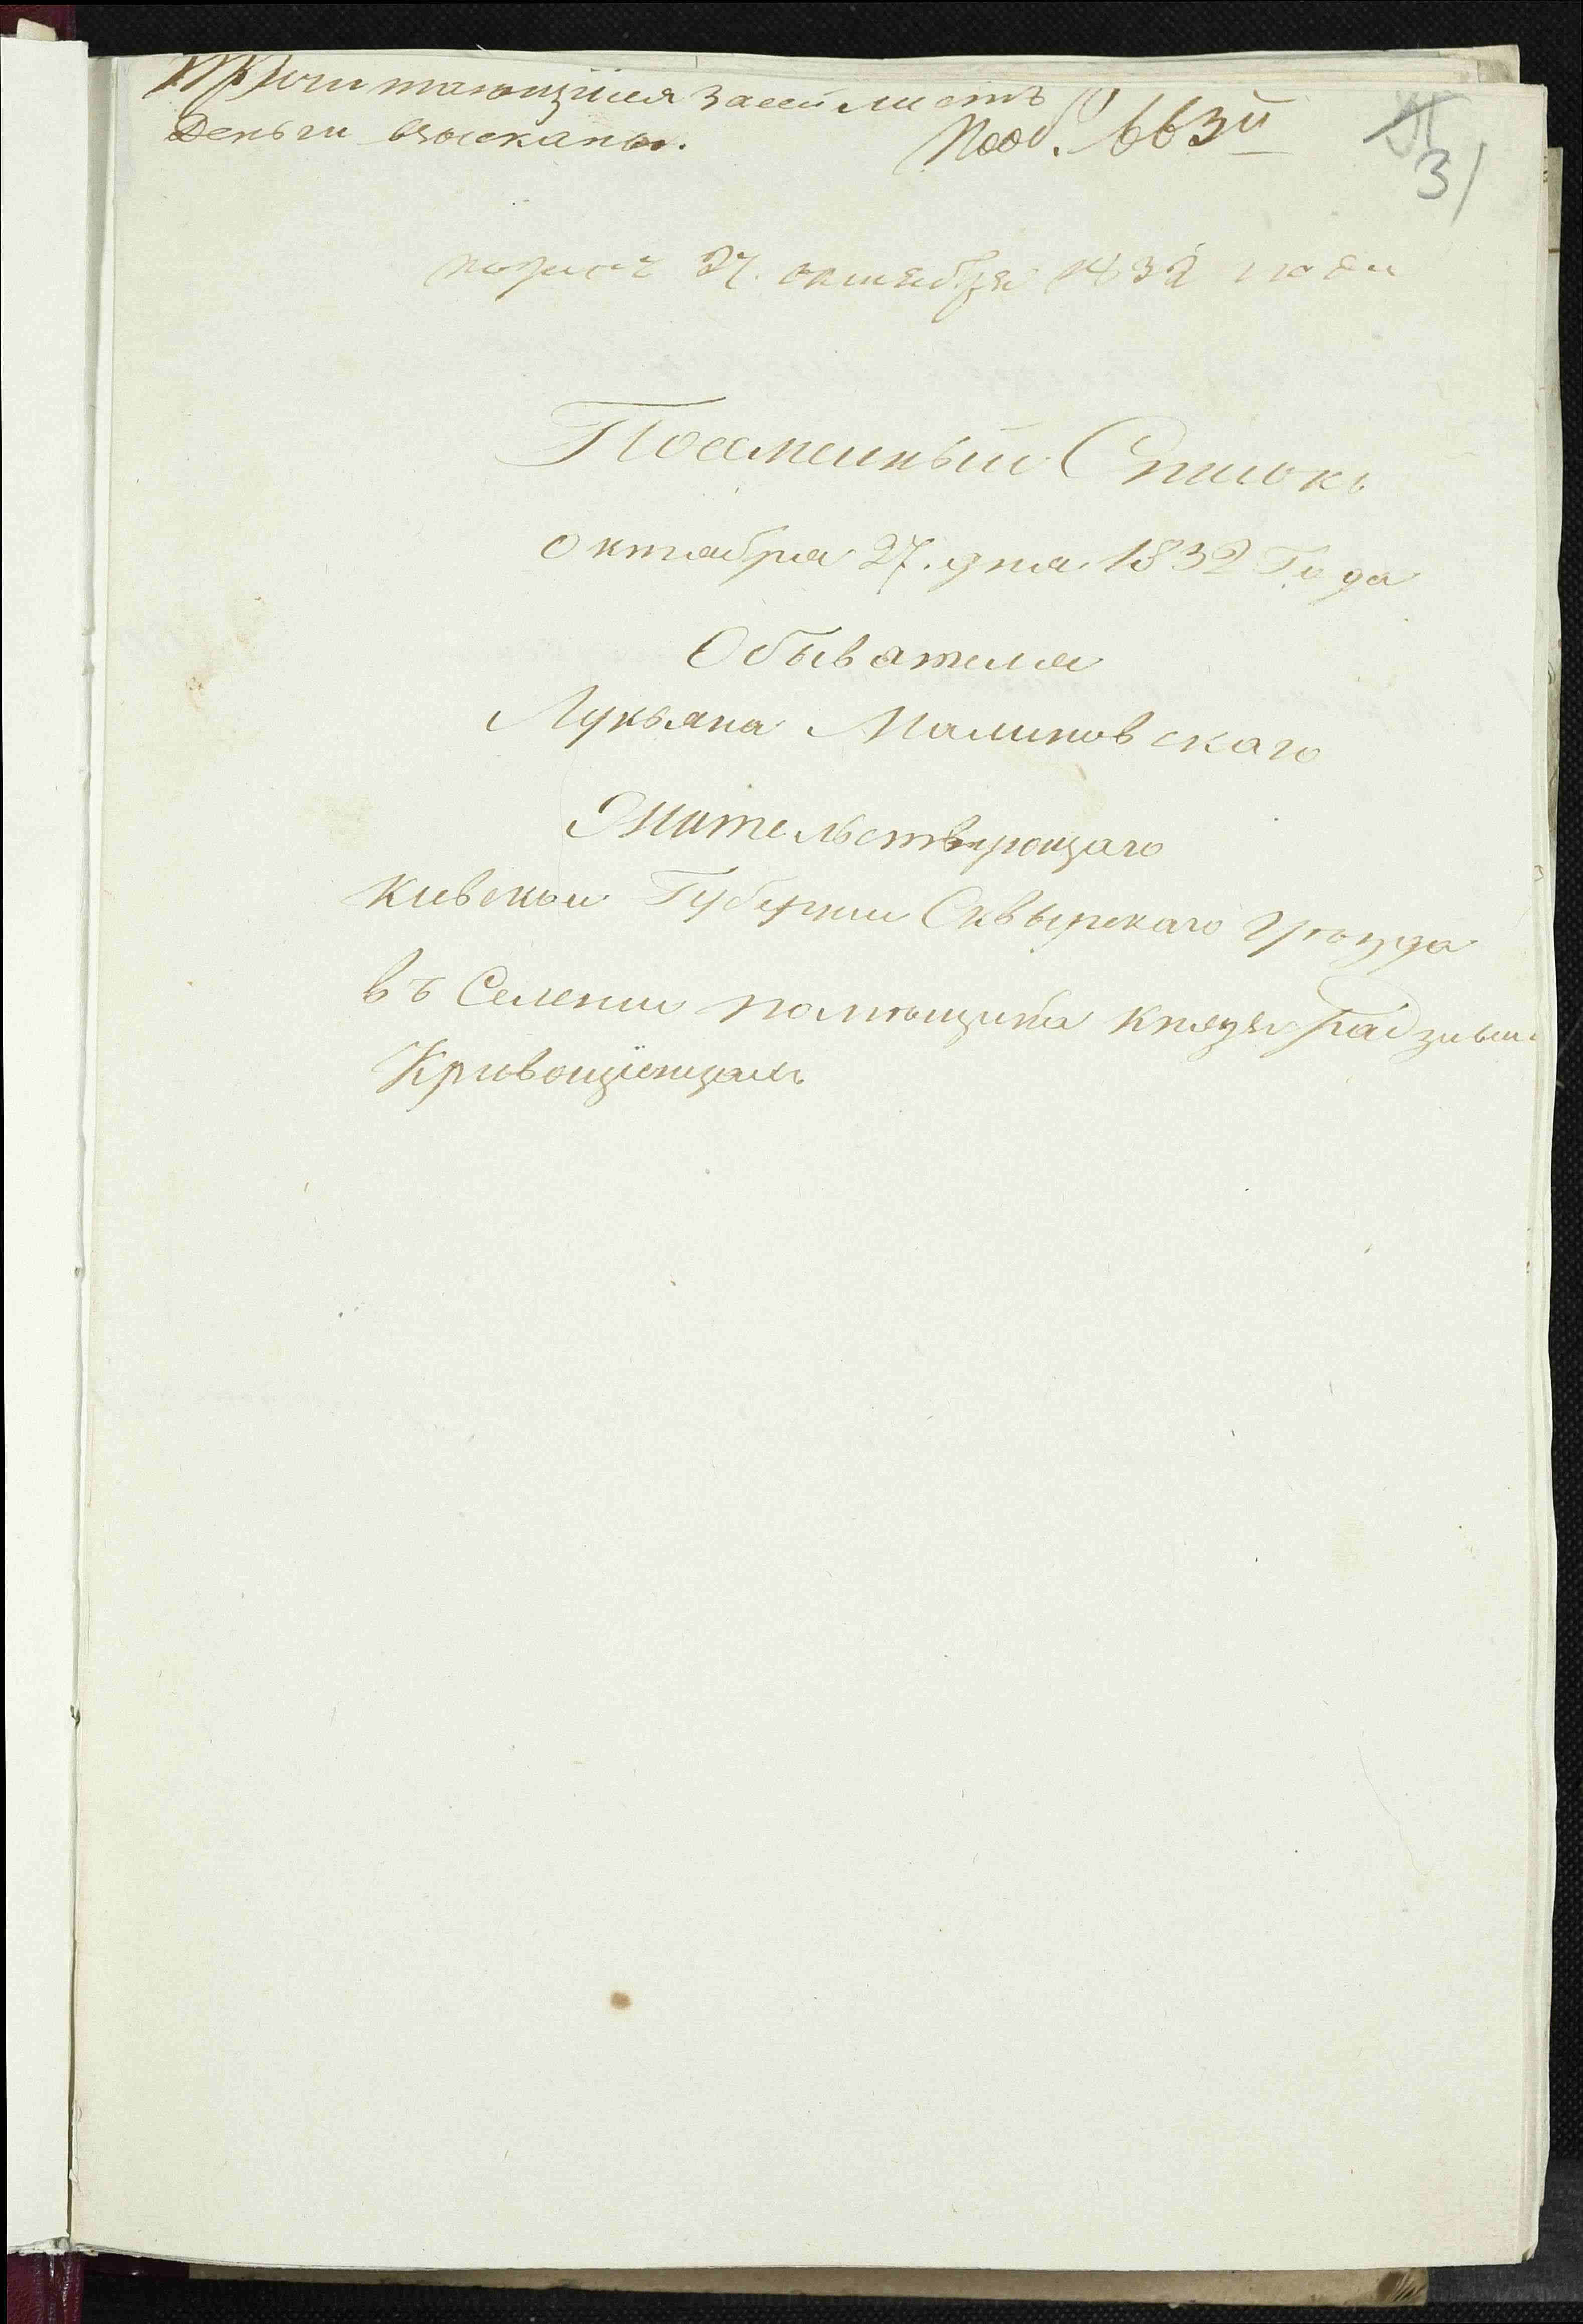 Причитающіися за сей листъ
Деньги взысканы.
Пооб. 663й
31
27. октября 1832 года
Поемейный Списокъ
Октабря 27. дня. 1832 Года
Обывателя
Лукьяна Малиновскаго
Жительствующаго
Киевской Губернии Сквырскаго Уѣзда
въ Селении помѣщика Князя Радзивил
Кривошіенцахъ